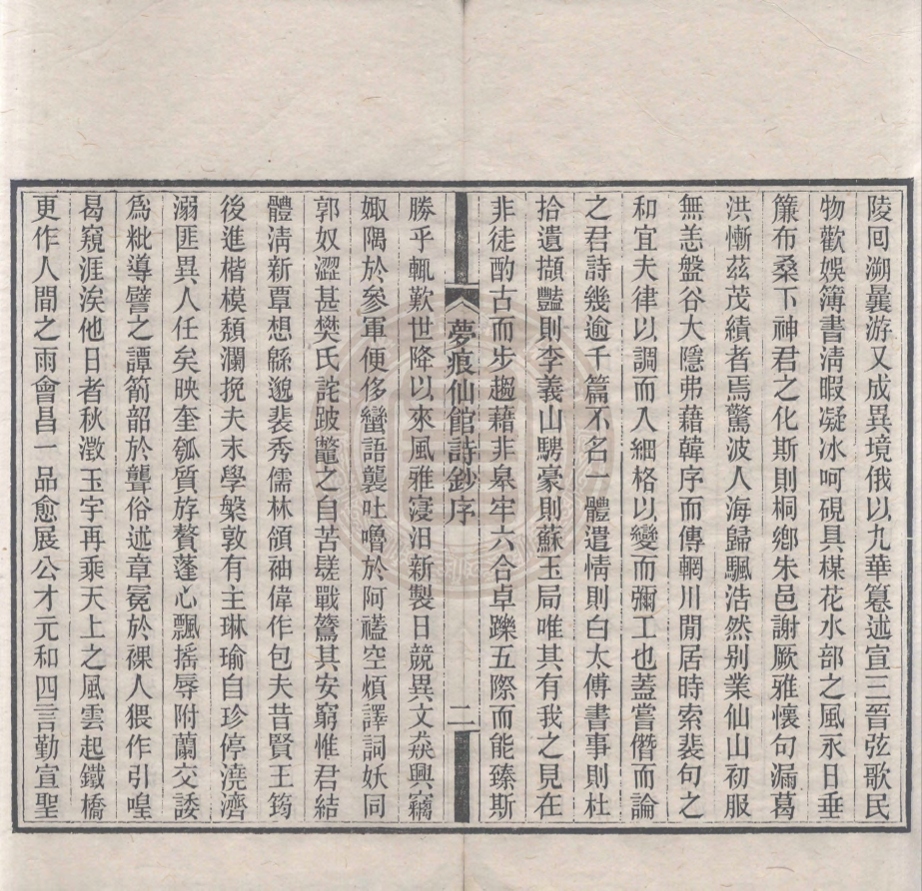 陵回溯曩游又成異境俄以九華篹述宣三晉弦歌民
物歡娛簿書淸暇凝冰呵硯具楳花水部之風永日垂
簾布桑下神君之化斯則桐鄕朱邑謝厥雅懷句漏葛
洪慚茲茂績者焉驚波人海歸颿浩然别業仙山初服
無恙盤谷大隱弗藉韓序而傳輞川閒居時索裴句之
和宜夫律以調而入細格以變而彌工也蓋嘗僭而論
之君詩幾逾千篇不名一體遣情則白太傅書事則杜
拾遺擷豔則李義山騁豪則蘇玉局唯其有我之見在
非徒酌古而步趨藉非皋牢六合卓躒五際而能臻斯
夢痕仙館詩鈔序 二
勝乎輒歎世降以來風雅寖汨新製日競異文猋興竊
娵隅於參軍便侈蠻語襲吐嚕於阿䙖空煩譯詞妖同
郭奴澀甚樊氏詫跛鼈之自苦磋戰鶩其安窮惟君結
體淸新覃想緜邈裴秀儒林領袖偉作包夫昔賢王筠
後進楷模頹瀾挽夫末學槃敦有主琳瑜自珍停澆濟
溺匪異人任矣映奎瓠質斿贅蓬心飄搖辱附蘭交諉
爲粃導譬之譚箾韶於聾俗述章冕於裸人猥作引喤
曷窺涯涘他日者秋澂玉宇再乘天上之風雲起鐵橋
更作人間之雨會昌一品愈展公才元和四言勤宣聖